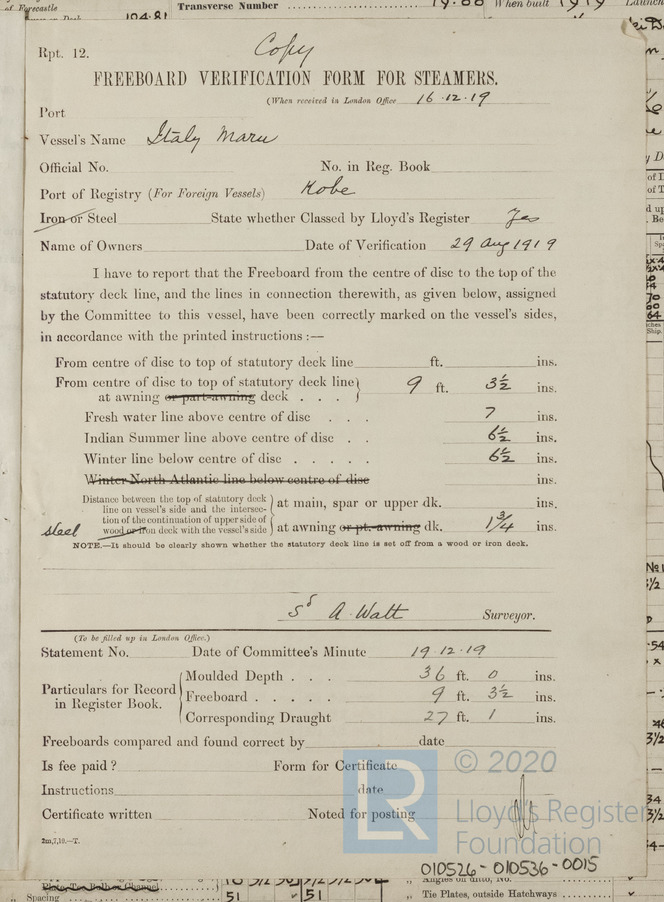 of Forecastle
Transverse Number
When built 1919
104.81
Rpt. 12.
Copy
FREEBOARD VERIFICATION FORM FOR STEAMERS.
(When received in London Office 16.12.19
Port
Vessel's Name Italy Maru
Official No. No. in Reg. Book
Port of Registry (For Foreign Vessels) Kobe
Iron or Steel State whether Classed by Lloyd's Register Yes
Name of Owners Date of Verification 29 Aug 1919
I have to report that the Freeboard from the centre of disc to the top of the
statutory deck line, and the lines in connection therewith, as given below, assigned
by the Committee to this vessel, have been correctly marked on the vessel's sides,
in accordance with the printed instructions :—
From centre of disc to top of statutory deck line ft. ins.
From centre of disc to top of statutory deck line
at awning or part-awning deck . . . 9 ft. 3½ ins.
Fresh water line above centre of disc . . . 7 ins.
Indian Summer line above centre of disc . . 6½ ins.
Winter line below centre of disc . . . . . 6½ ins.
Winter North Atlantic line below centre of disc ins.
Distance between the top of statutory deck
line on vessel's side and the intersec-
tion of the continuation of upper side of
steel wood or iron deck with the vessel's side
at main, spar or upper dk. ins.
at awning or pt. awning dk. 1¾ ins.
NOTE.—It should be clearly shown whether the statutory deck line is set off from a wood or iron deck.
Sd A. Watt Surveyor.
(To be filled up in London Office.)
Statement No. Date of Committee's Minute 19.12.19
Particulars for Record
in Register Book.
Moulded Depth . . . 36 ft. 0 ins.
Freeboard . . . . . 9 ft. 3½ ins.
Corresponding Draught 27 ft. 1 ins.
Freeboards compared and found correct by date
Is fee paid ? Form for Certificate
Instructions date
Certificate written Noted for posting
2m,7,19.—T.
LR
© 2020
Lloyd's Register
Foundation
010526-010536-0015
Spacing 51 51
Tie Plates, outside Hatchways